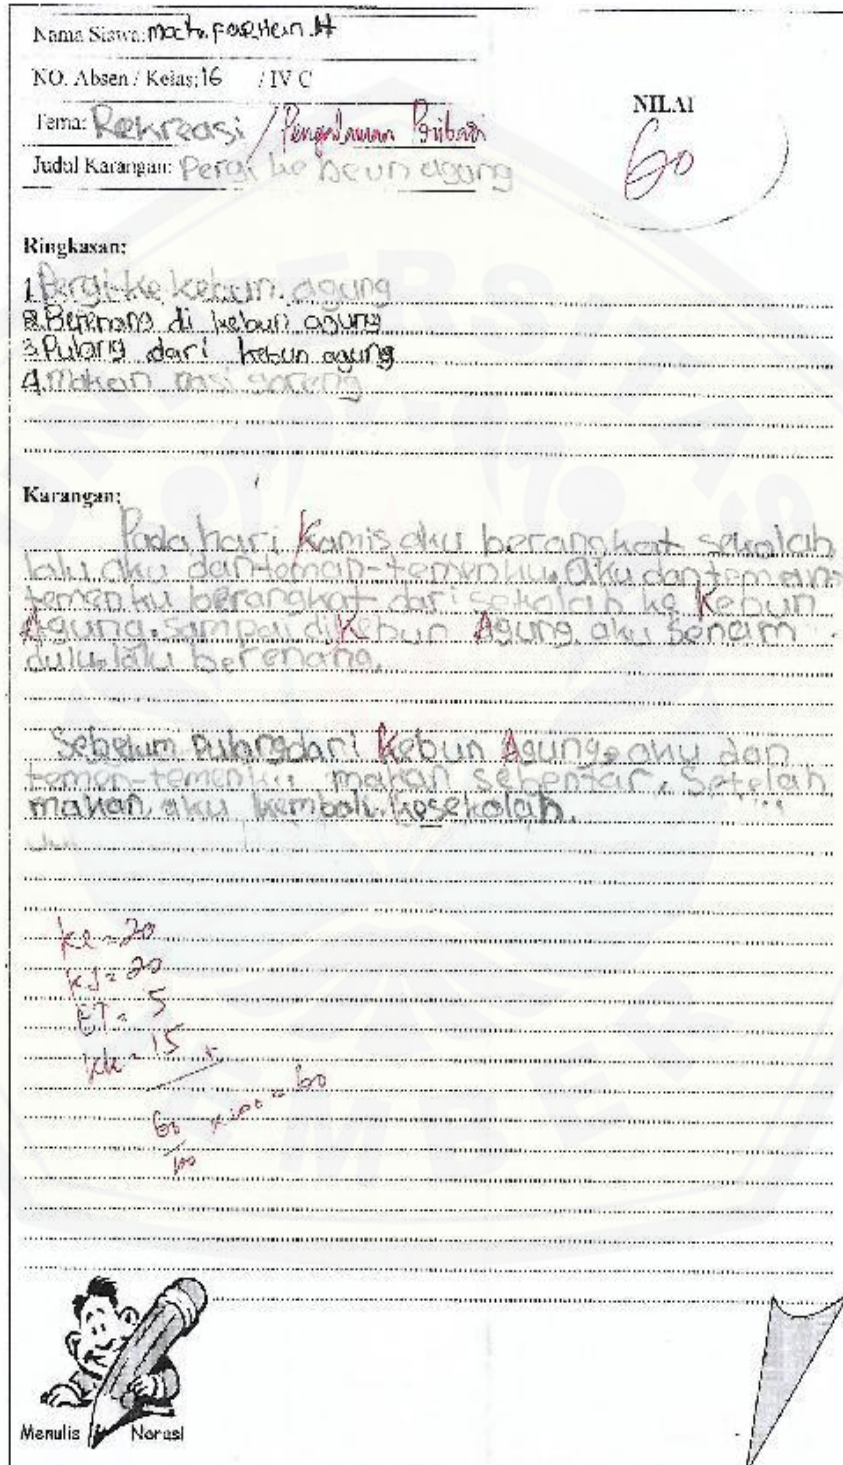 Nama Siswa: Moch. Farhein .H
NO. Absen / Kelas: 16 / IV C
Tema: Rekreasi / Pengalaman Pribadi
Judul Karangan: Pergi ke beun agung
NILAI
60
Ringkasan:
1. Pergi ke kebun agung
2. Berenang di kebun agung
3. Pulang dari kebun agung
4. makan nasi goreng
Karangan:
Pada hari Kamis aku berangkat sekolah
lalu aku dan teman-temenku. aku dan teman-
temenku berangkat dari sekolah ke Kebun
Agung. sampai di Kebun Agung aku senam
dulu lalu berenang.
Sebelum pulang dari Kebun Agung, aku dan
temen-temenku makan sebentar. Setelah
makan, aku kembali kesekolah.
= 20
KJ = 20
ET = 5
KK = 15 +
60 x 100 = 60
100
Menulis Narasi
UNIVERSITAS
JEMBER